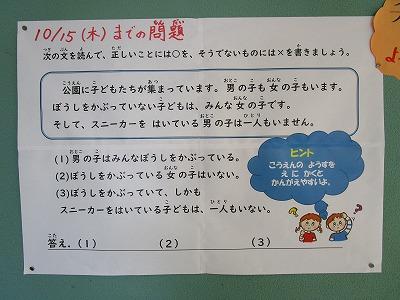 10/15(木)までの問題
次の文を読んで、正しいことには○を、そうでないものには×を書きましょう。
公園に子どもたちが集まっています。男の子も女の子もいます。
ぼうしをかぶっていない子どもは、みんな女の子です。
そして、スニーカーを はいている男の子は一人もいません。
(1)男の子はみんなぼうしをかぶっている。
(2)ぼうしをかぶっている女の子はいない。
(3)ぼうしをかぶっていて、しかも
スニーカーをはいている子どもは、一人もいない。
ヒント
こうえんの ようすを
え に かくと
かんがえやすいよ。
答え.(1) (2) (3)